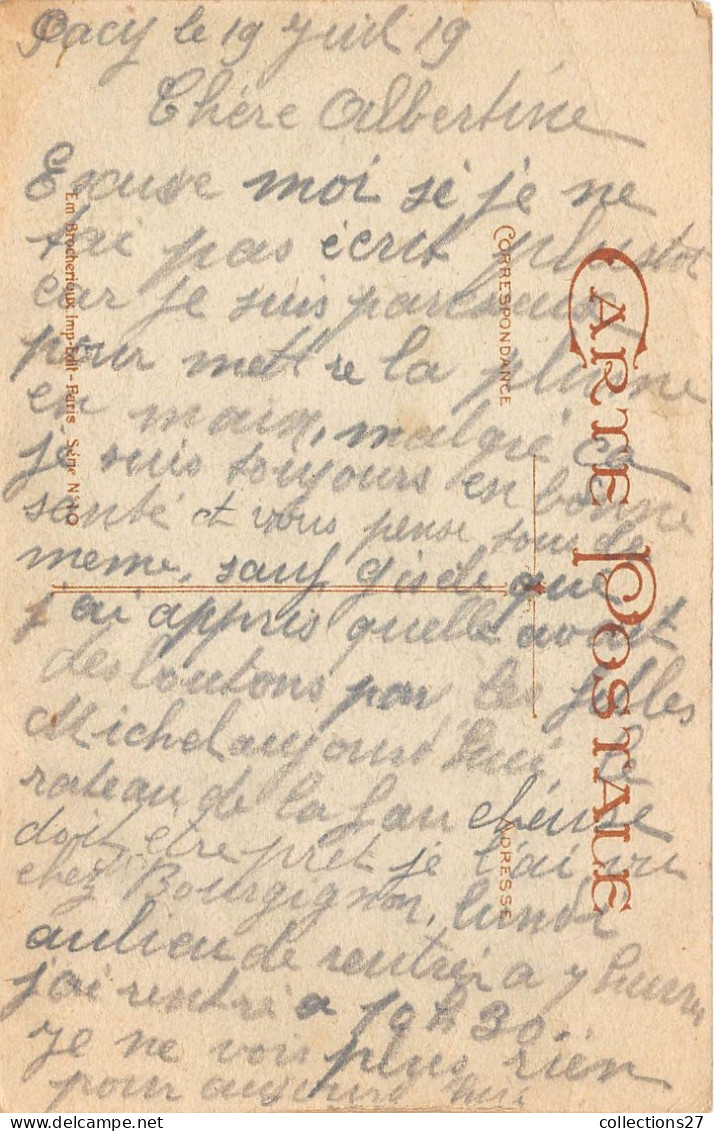 Pacy le 19 Juil 19
Chère Albertine
Excuse moi si je ne
t'ai pas écrit plustot
car je suis paresseuse
pour mettre la plume
en main, malgré ça
je suis toujours en bonne
santé et vous pense tous de
meme, sauf Gisele que
j'ai appris quelle avait
des boutons par les filles
Michel aujourd'hui, le
rateau de la faucheuse
doit être prêt je l'ai vu
chez Bourgignon, lundi
aulieu de rentrer a 7 heures
j'ai rentré a 10 h 30.
Je ne vois plus rien
pour aujourd'hui
CARTE POSTALE
CORRESPONDANCE
ADRESSE
Em. Brocherioux, Imp-Edit - Paris Série N° 10
collections27